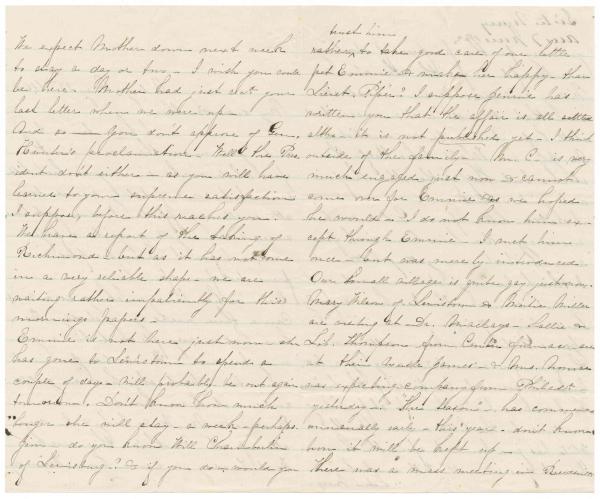 We expect Mother down next week
to stay a day or two - I wish you could
be here. Mother had just sent your
last letter where we were up -
And so - you don't approve of Gen.
Hunter's proclamation. Well the Pres-
ident don't either - as you will have
learned to your supreme satisfaction
I suppose, before this reaches you.
We have a report of the taking of
Richmond - but as it has not come
in a very reliable shape - we are
waiting rather impatiently for this
mornings papers -
Emmie is not here just now - she
has gone to Lewistown to spend a
couple of days - Will probably be out again
tomorrow. Don't know how much
longer she will stay - a week - perhaps.
Jim - do you know Will Chamberlin
of Lewisburg? & if you do, would you
trust him
rather, to take good care of our little
pet Emmie & make her happy - than
Lieut. Piper? I suppose Jennie has
written you that the affair is all settled
altho - it is not published yet - I think
outside of the family - Mr. C. is very
much engaged just now & cannot
come over for Emmie as we hoped
he would - I do not know him ex-
cept through Emmie - I met him
once - but was merely introduced
Our small village is quite gay just now.
Mary Wilson of Lewistown & Millie Miller
are visiting at Dr. Maclays - Sallie &
Lib. Thompson from Centre furnace are
at their Uncle James' - & Mrs. Thomas
was expecting company from Philad.
yesterday - "The season" has commenced
unusually early - this year - don't know
how it will be kept up -
There was a mass meeting in